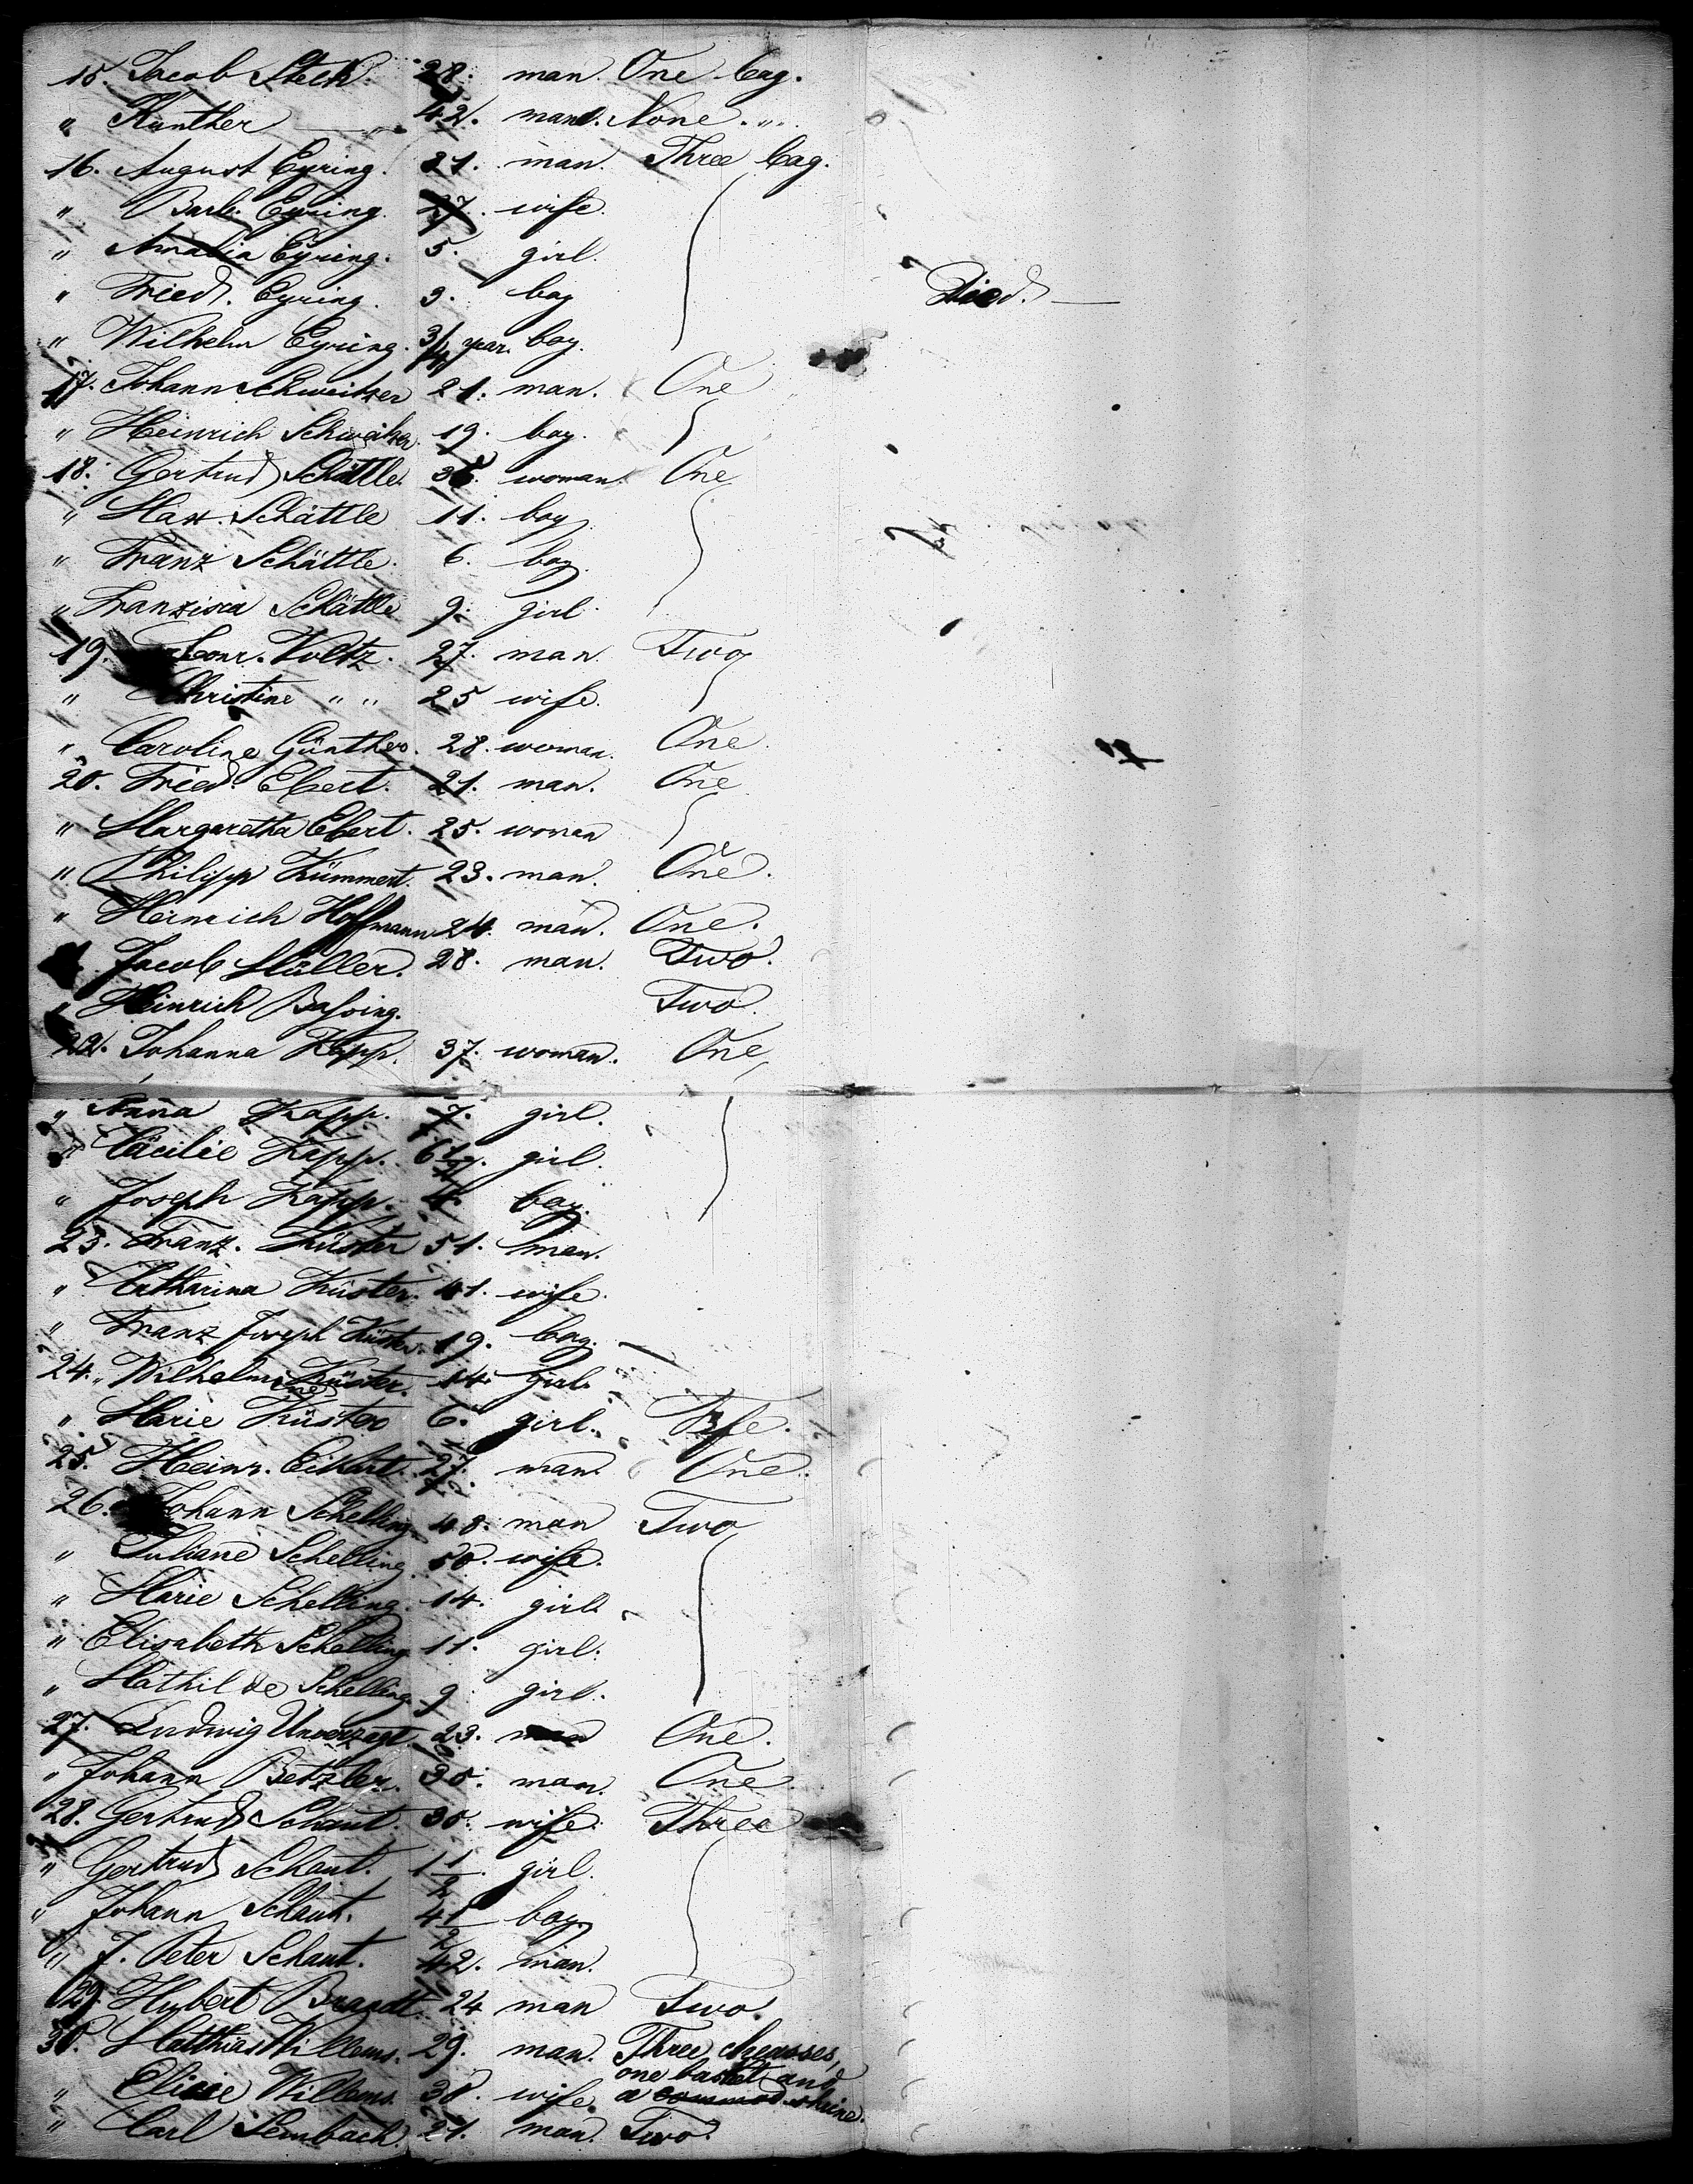 15. Jacob Stech. 28. man. One bag.
" Kunther 42. man. None. "
16. August Eyring. 31. man. Three bag.
" Barb. Eyring. 27. wife.
" Amalia Eyring. 5. girl.
" Fried. Eyring. 3. boy Died.
" Wilhelm Eyring. 3/4 year boy.
17. Johann Schweitzer 21. man. One
" Heinrich Schweitzer. 19. boy.
18. Gertrud Schättle. 36. woman. One
" Max. Schättle 11. boy
" Franz Schättle. 6. boy.
" Franzisca Schättle 9. girl
19. Conr. Voltz. 27. man. Two
" Christine " " 25 wife.
" Caroline Günther. 28. woman. One.
20. Fried. Ebert. 21. man. One
" Margaretha Ebert. 25. woman
" Philipp Kümmert. 23. man. One.
" Heinrich Hoffmann 24. man. One.
Jacob Müller. 28. man. Two.
" Heinrich Two.
22. Johanna Kapp. 37. woman. One
" Anna Kapp. 7. girl.
" Cäcilie Kapp. 6 1/2. girl.
" Joseph Kapp. 4. boy.
23. Franz. Küster 51. man.
" Catharina Küster. 41. wife.
" Franz Joseph Küster. 19. boy.
24. " Wilhelmine Küster. 14. girl.
" Marie Küster 6. girl.
25. Heinr. Eckert. 27. man. One.
26. Johann Schelling 48. man Two
" Juliane Schelling. 50. wife.
" Marie Schelling. 14. girl
" Elisabeth Schelling 11. girl.
" Mathilde Schelling. 9 girl.
27. Ludwig Unverzagt. 23. man One.
" Johann Betzler. 30. man. One.
28. Gertrud Schaut. 30. wife. Three
" Gertrud Schaut. 1 1/2. girl.
" Johann Schaut. 4 1/2 boy
" J. Peter Schaut. 42. man.
29. Hubert Brandt. 24 man Two.
30. Matthias Willems. 29. man. Three cheasses,
one basket and
" Elisie Willems. 30. wife. a
" Carl Sembach. 21. man. Two.